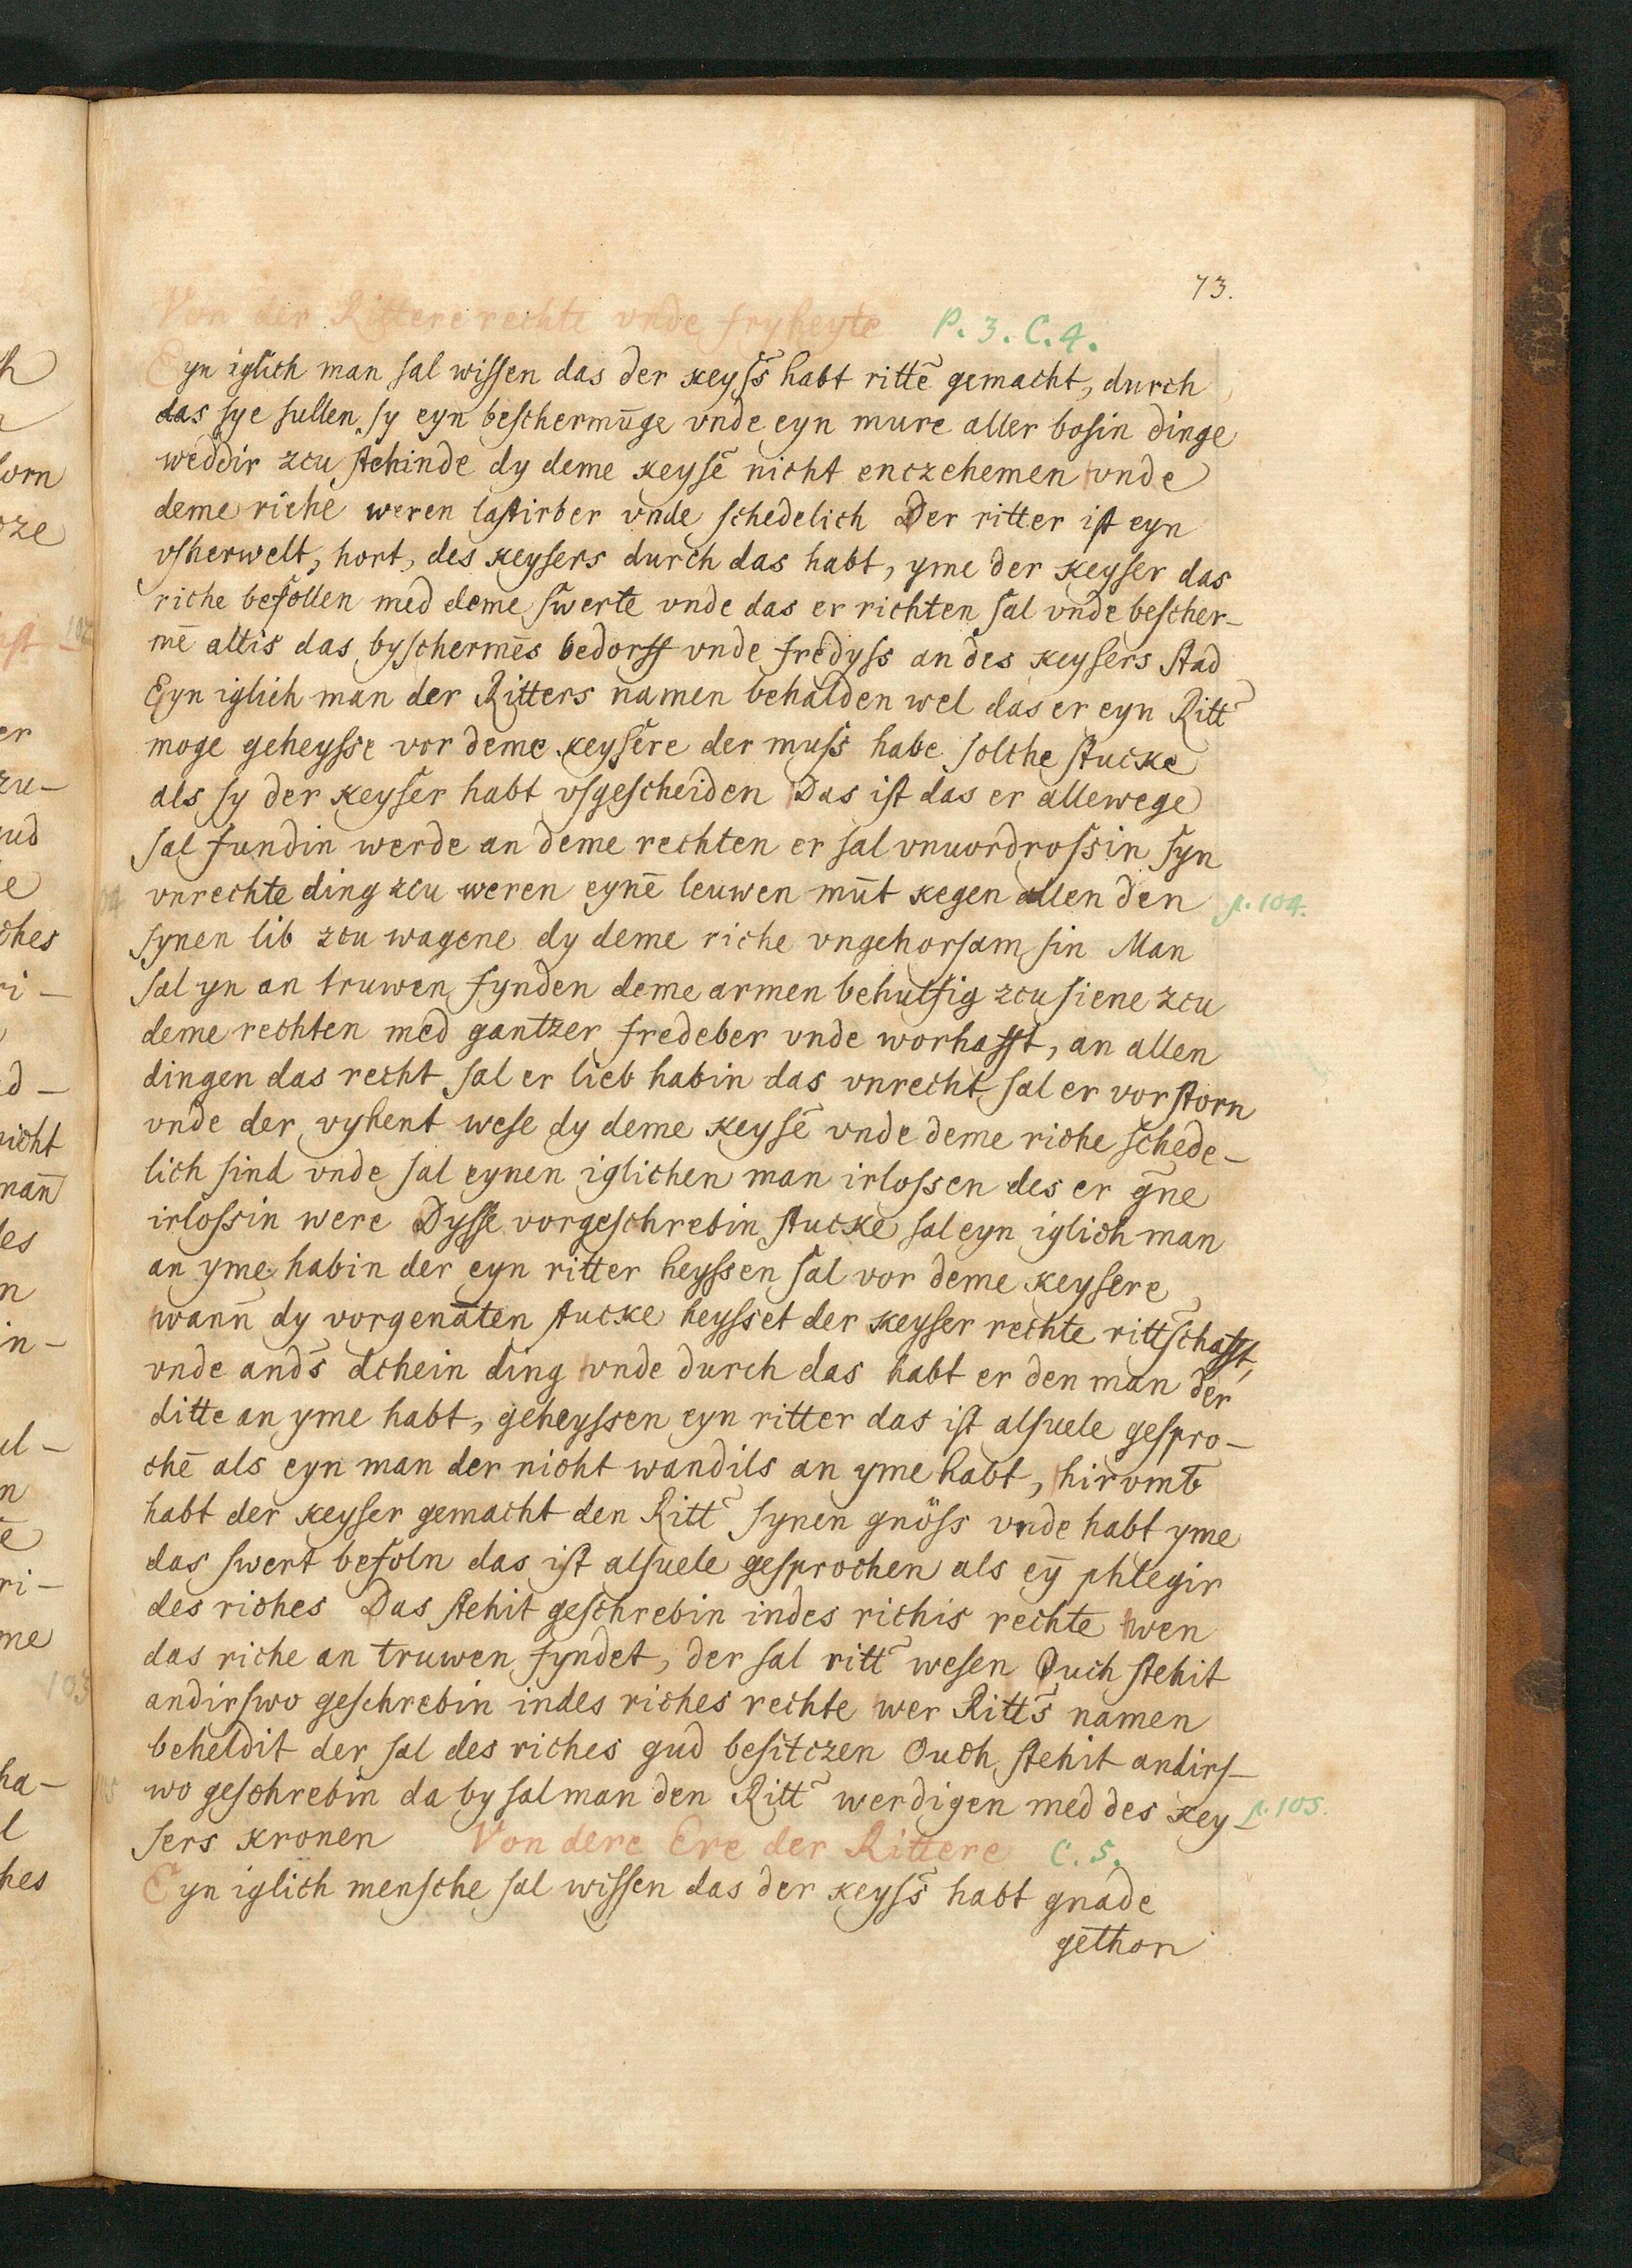 73.
Von der Rittere rechte vnde fryheyte P. 3. C. 4.
Eyn iglich man sal wissen das der keyss̄ habt rittē gemacht, durch
das sye sullen sy eyn beschermūge vnde eyn mure aller bosin dinge
weddir zcu stehinde dy deme keysē nicht enczehemen vnde
deme riche weren lastirber vnde schedelich Der ritter ist eyn
vsherwelt, hort, des keysers durch das habt, yme der keyser das
riche befollen med deme swerte vnde das er richten sal vnde bescher-
mē altis das byschermēs bedorff vnde fredyss an des keysers stad
Eyn iglich man der Ritters namen behalden wel das er eyn Ritt̄
moge geheysse vor deme keysere der muss habe solche stucke
als sy der keyser habt vsgescheiden Das ist das er allewege
sal fundin werde an deme rechten er sal vnuordrossin syn
vnrechte ding zcu weren eynē leuwen mūt kegen allen den p. 104.
synen lib zcu wagene dy deme riche vngehorsam sin Man
sal yn an truwen fynden deme armen behulfig zcu siene zcu
deme rechten med gantzer fredeber vnde worhafft, an allen
dingen das recht sal er lieb habin das vnrecht sal er vorstorn
vnde der vyhent wese dy deme keysē vnde deme riche schede-
lich sind vnde sal eynen iglichen man irlossen des er gn̄e
irlossin were Dysse vorgeschrebin stucke sal eyn iglich man
an yme habin der eyn ritter heyssen sal vor deme keysere
wann̄ dy vorgenāten stucke heysset der keyser rechte ritt̄schafft,
vnde ands̄ dchein ding vnde durch das habt er den man der
ditte an yme habt, geheyssen eyn ritter das ist alsuele gespro-
chē als eyn man der nicht wandils an yme habt, hir vmb
habt der keyser gemacht den Ritt̄ synen gnöss vnde habt yme
das swert befoln das ist alsuele gesprochen als eȳ phlegir
des riches Das stehit geschrebin indes richis rechte wen
das riche an truwen fyndet, der sal ritt̄ wesen Ouch stehit
andirswo geschrebin indes riches rechte wer Ritts̄ namen
beheldit der sal des riches gud besitczen Ouch stehit andirs-
wo geschrebin da by sal man den Ritt̄ werdigen med des key- p. 105.
sers kronen Von dere Ere der Rittere C. 5.
Eyn iglich mensche sal wissen das der keyss̄ habt gnade
gethon